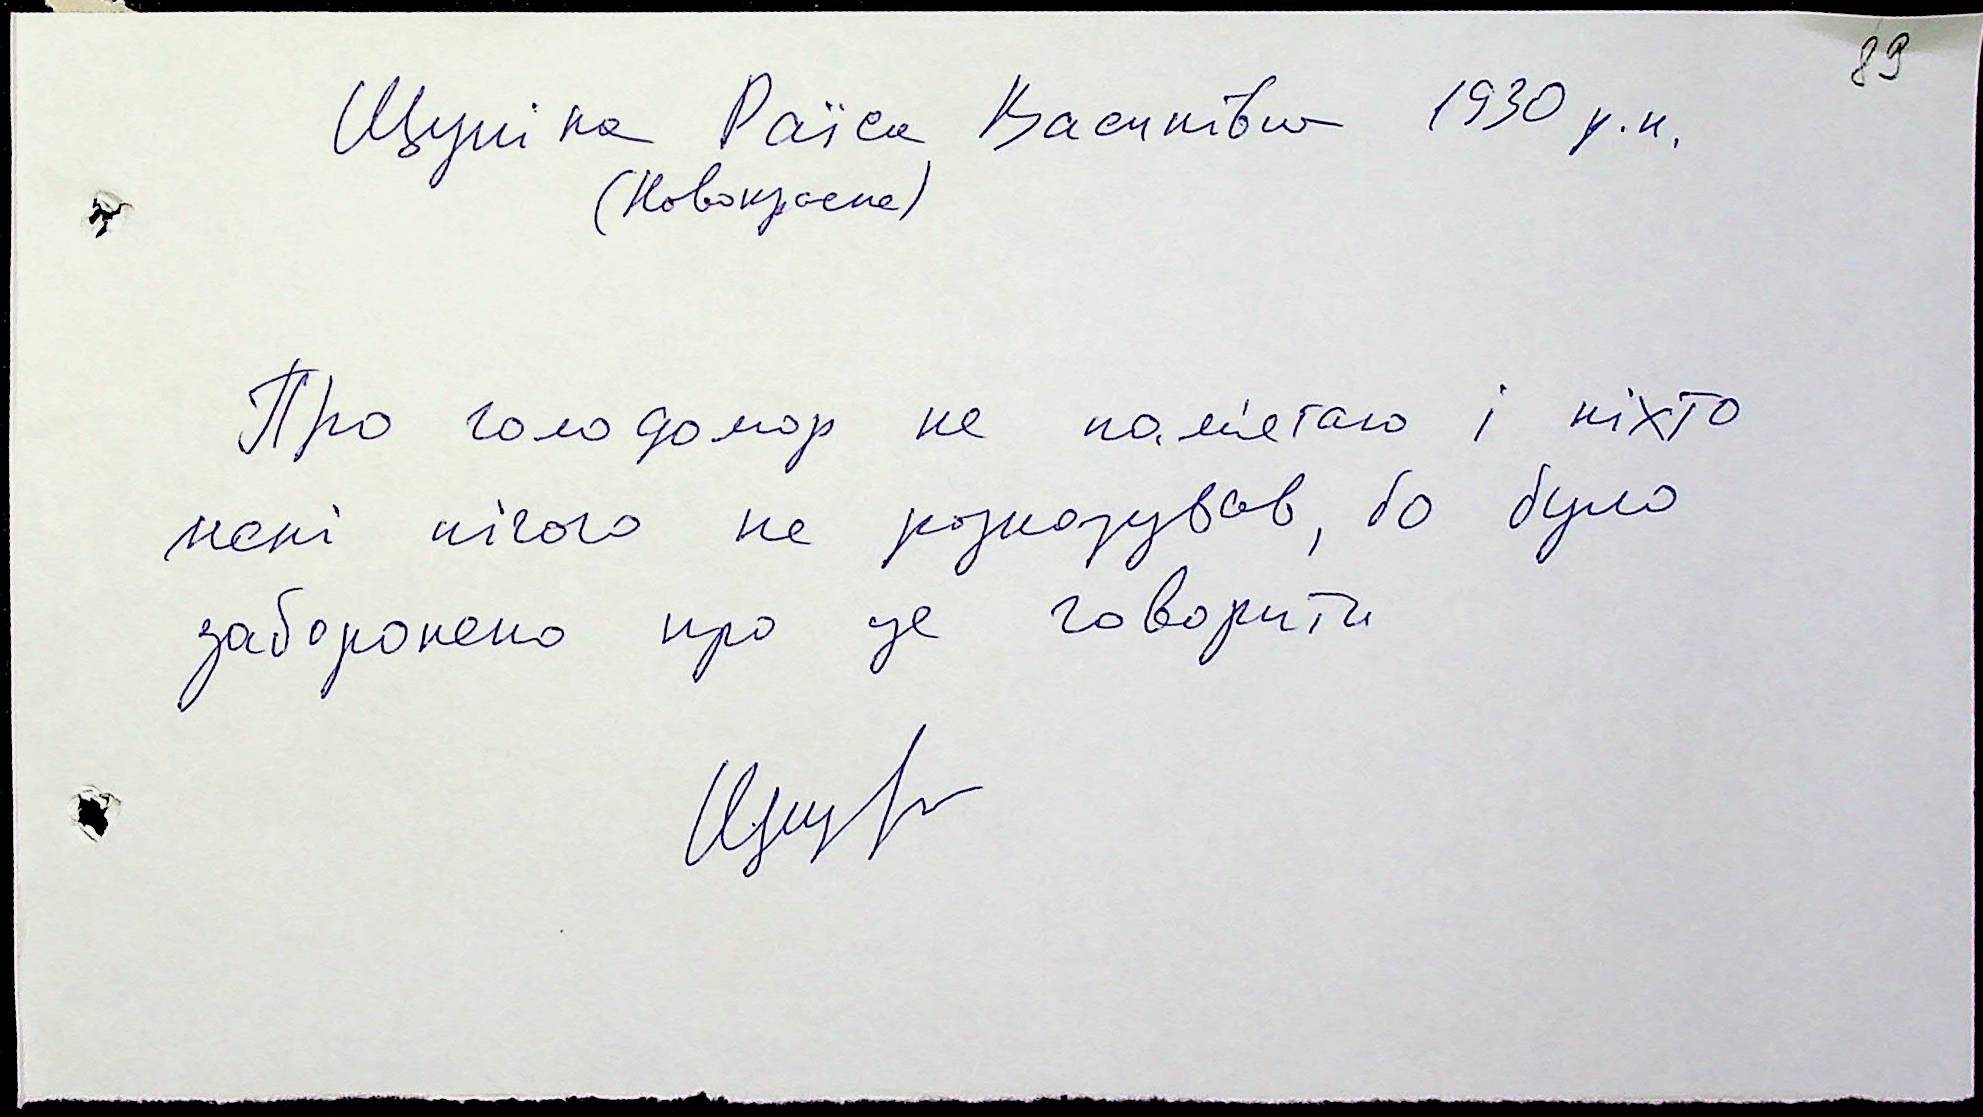 89
Щупіка Раїса Василівна 1930 р.н.
(Новокрасне)
Про голодомор не пам'ятаю і ніхто
мені нічого не розказував, бо було
заборонено про це говорити